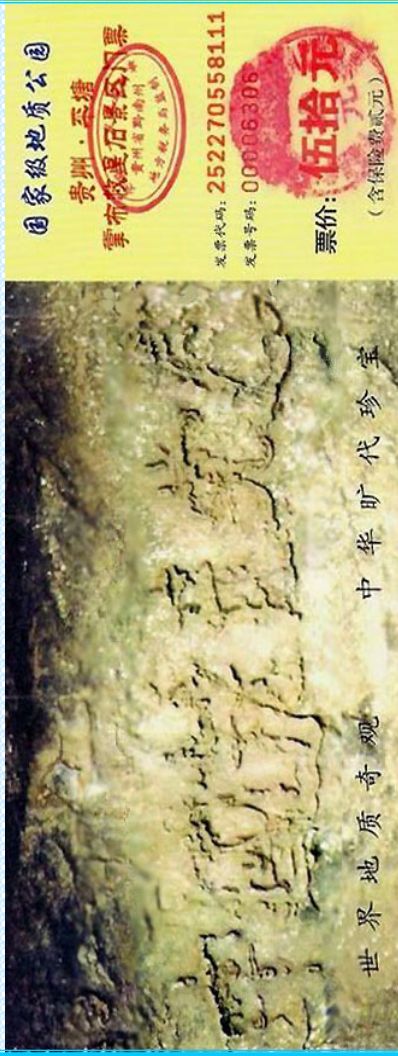 国家级地质公园
贵州·平塘
掌布救星石景区门票
贵州省黔南州
发票代码: 252270558111
发票号码: 00006306
票价: 伍拾元
(含保险费贰元)
中國共産党亡
世界地质奇观 中华旷代珍宝